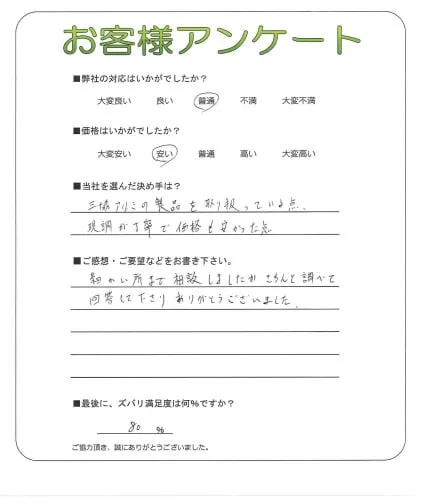 お客様アンケート
■弊社の対応はいかがでしたか？
大変良い 良い 普通 不満 大変不満
■価格はいかがでしたか？
大変安い 安い 普通 高い 大変高い
■当社を選んだ決め手は？
三協アルミの製品を取り扱っている点、
現調が丁寧で価格も安かった点
■ご感想・ご要望などをお書き下さい。
細かい所まで相談しましたがきちんと調べて
回答して下さりありがとうございました。
■最後に、ズバリ満足度は何%ですか？
80 %
ご協力頂き、誠にありがとうございました。